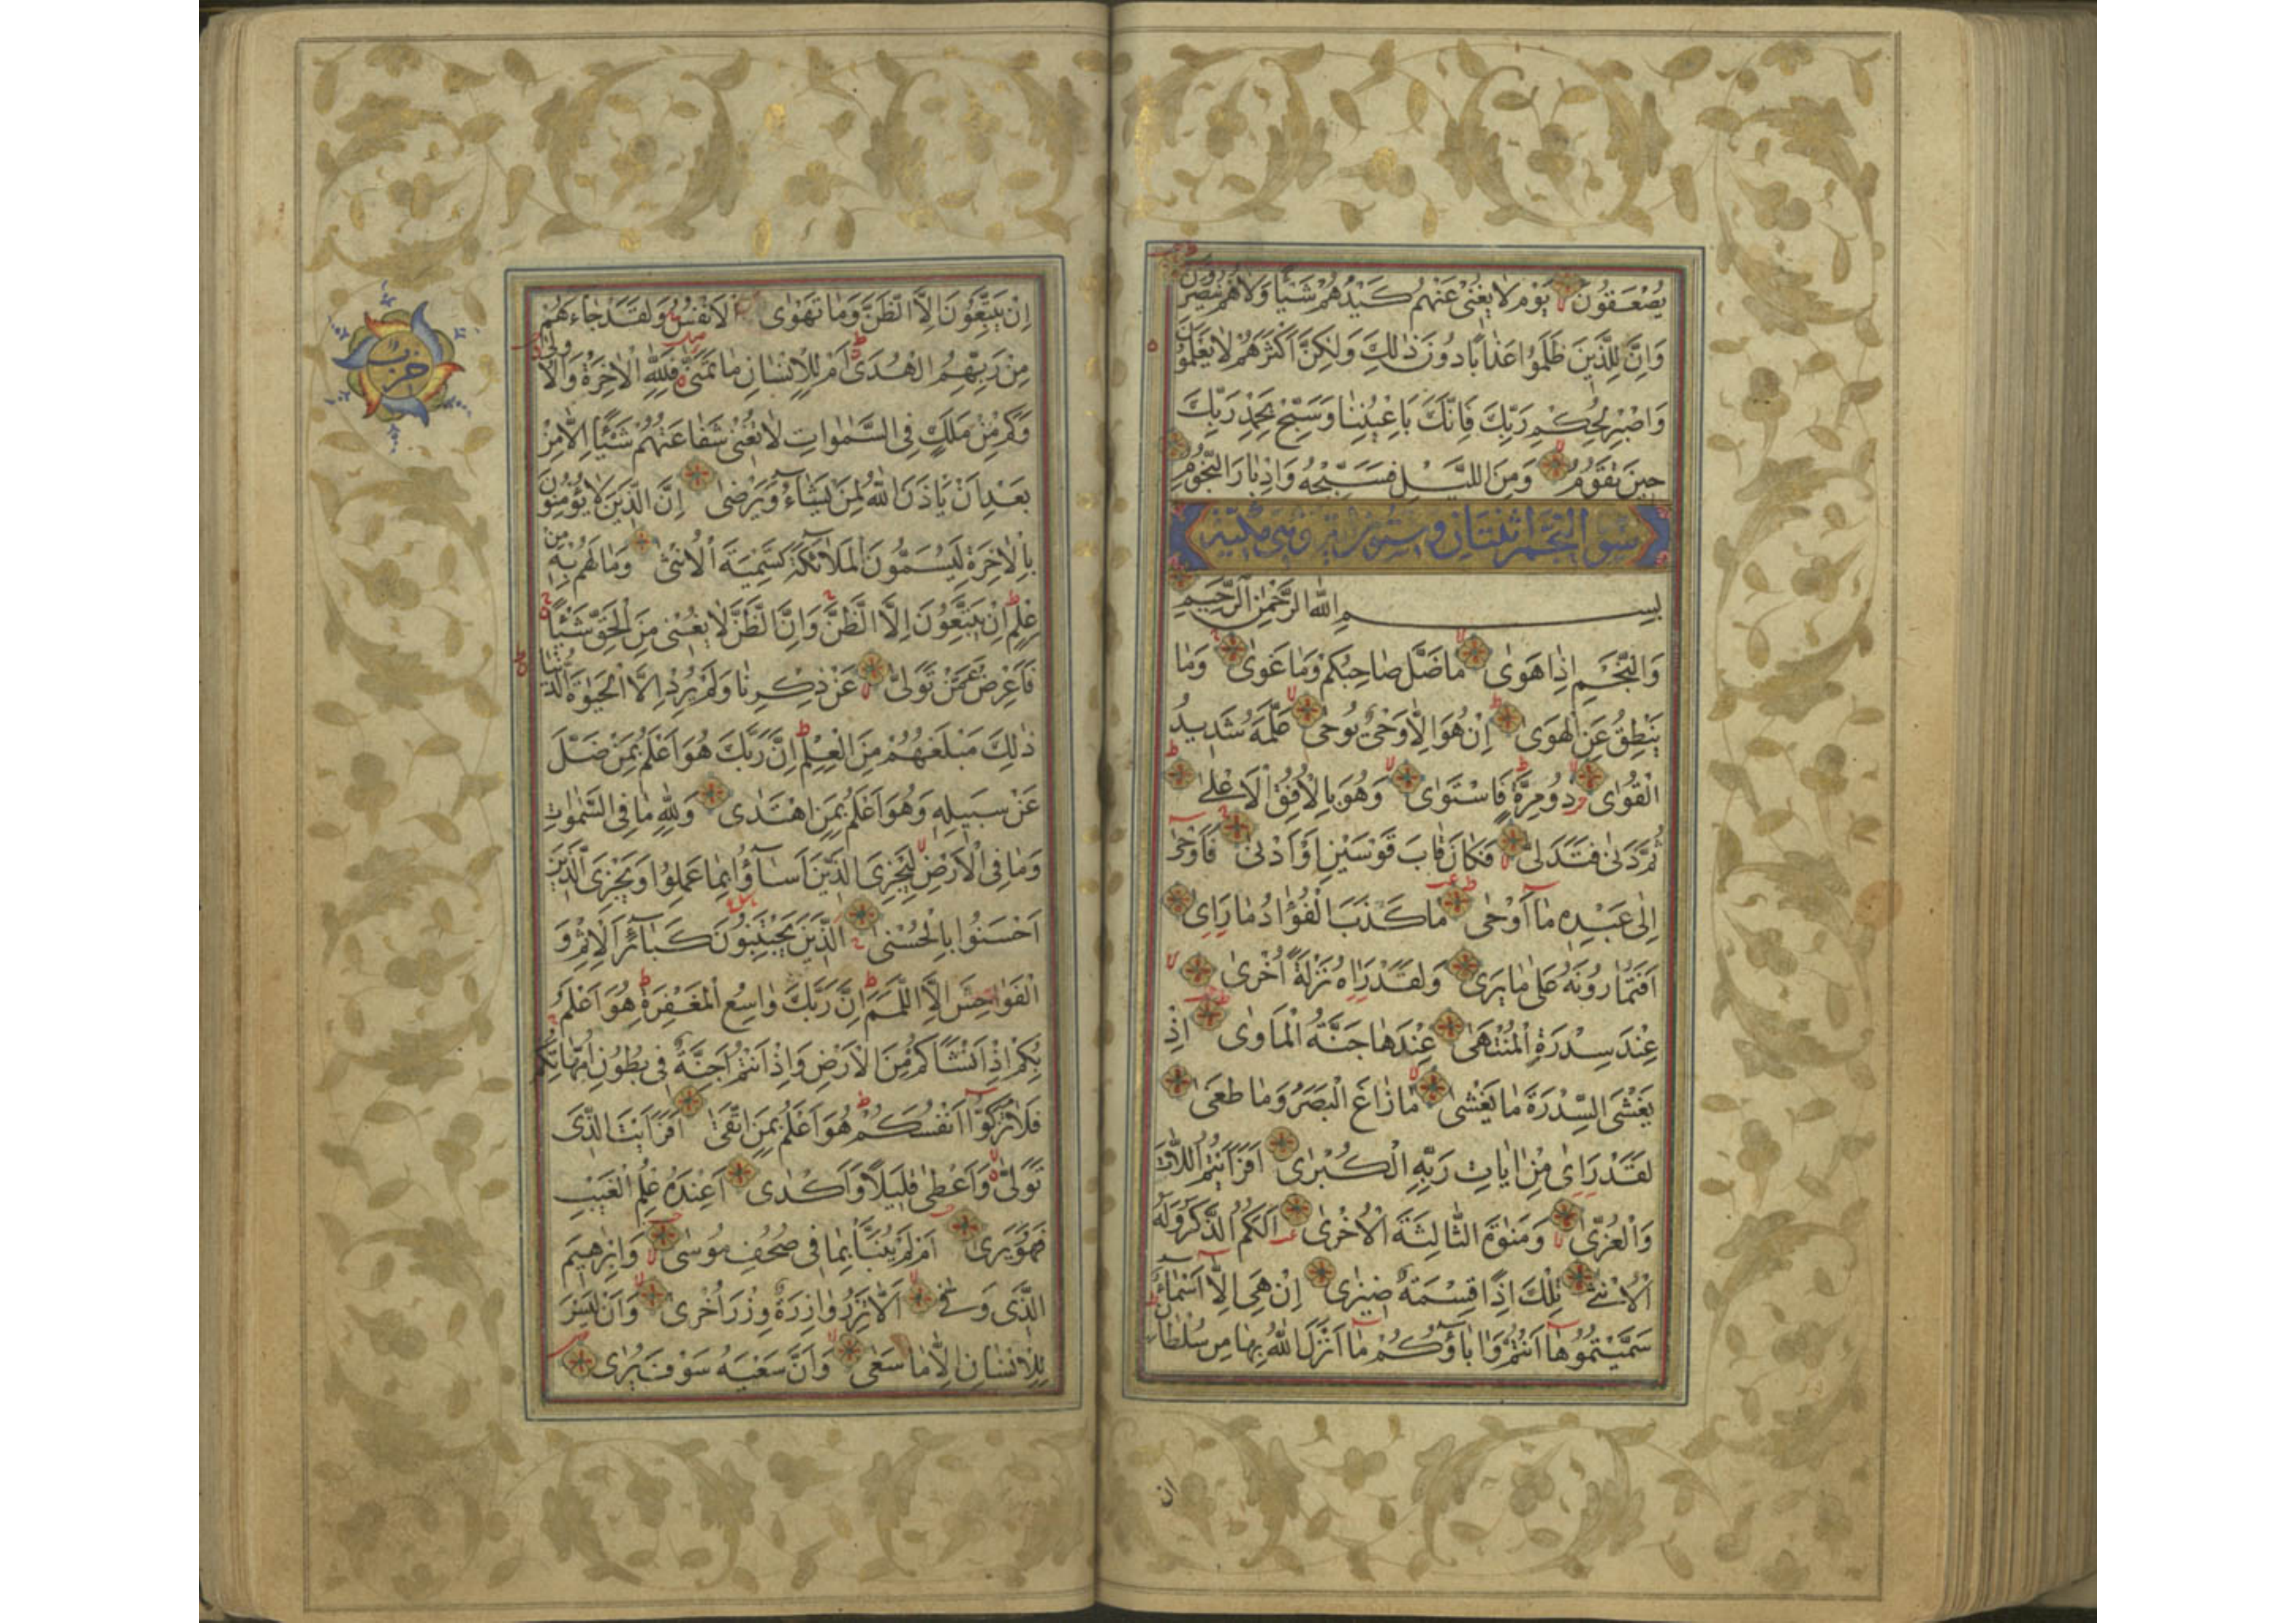 يُصْعَقُونَ يَوْمَ لَا يُغْنِي عَنْهُمْ كَيْدُهُمْ شَيْئًا وَلَا هُمْ يُنْصَرُونَ
وَإِنَّ لِلَّذِينَ ظَلَمُوا عَذَابًا دُونَ ذَلِكَ وَلَكِنَّ أَكْثَرَهُمْ لَا يَعْلَمُونَ
وَاصْبِرْ لِحُكْمِ رَبِّكَ فَإِنَّكَ بِأَعْيُنِنَا وَسَبِّحْ بِحَمْدِ رَبِّكَ
حِينَ تَقُومُ وَمِنَ اللَّيْلِ فَسَبِّحْهُ وَإِدْبَارَ النُّجُومِ
سورة النجم اثنتان وستون اية وهي مكية
بِسْمِ اللهِ الرَّحْمٰنِ الرَّحِيمِ
وَالنَّجْمِ إِذَا هَوٰى مَا ضَلَّ صَاحِبُكُمْ وَمَا غَوٰى وَمَا
يَنْطِقُ عَنِ الْهَوٰى إِنْ هُوَ إِلَّا وَحْيٌ يُوحٰى عَلَّمَهُ شَدِيدُ
الْقُوٰى ذُو مِرَّةٍ فَاسْتَوٰى وَهُوَ بِالْأُفُقِ الْأَعْلٰى
ثُمَّ دَنٰى فَتَدَلّٰى فَكَانَ قَابَ قَوْسَيْنِ أَوْ أَدْنٰى فَأَوْحٰى
إِلٰى عَبْدِهِ مَا أَوْحٰى مَا كَذَبَ الْفُؤَادُ مَا رَاٰى
أَفَتُمَارُونَهُ عَلٰى مَا يَرٰى وَلَقَدْ رَاٰهُ نَزْلَةً أُخْرٰى
عِنْدَ سِدْرَةِ الْمُنْتَهٰى عِنْدَهَا جَنَّةُ الْمَأْوٰى إِذْ
يَغْشَى السِّدْرَةَ مَا يَغْشٰى مَا زَاغَ الْبَصَرُ وَمَا طَغٰى
لَقَدْ رَاٰى مِنْ اٰيَاتِ رَبِّهِ الْكُبْرٰى أَفَرَأَيْتُمُ اللَّاتَ
وَالْعُزّٰى وَمَنٰوةَ الثَّالِثَةَ الْأُخْرٰى أَلَكُمُ الذَّكَرُ وَلَهُ
الْأُنْثٰى تِلْكَ إِذًا قِسْمَةٌ ضِيزٰى إِنْ هِيَ إِلَّا أَسْمَاءٌ
سَمَّيْتُمُوهَا أَنْتُمْ وَاٰبَاؤُكُمْ مَا أَنْزَلَ اللهُ بِهَا مِنْ سُلْطَانٍ
ان
إِنْ يَتَّبِعُونَ إِلَّا الظَّنَّ وَمَا تَهْوَى الْأَنْفُسُ وَلَقَدْ جَاءَهُمْ
مِنْ رَبِّهِمُ الْهُدٰى أَمْ لِلْإِنْسَانِ مَا تَمَنّٰى فَلِلّٰهِ الْاٰخِرَةُ وَالْأُولٰى
وَكَمْ مِنْ مَلَكٍ فِي السَّمٰوَاتِ لَا تُغْنِي شَفَاعَتُهُمْ شَيْئًا إِلَّا مِنْ
بَعْدِ أَنْ يَأْذَنَ اللهُ لِمَنْ يَشَاءُ وَيَرْضٰى إِنَّ الَّذِينَ لَا يُؤْمِنُونَ
بِالْاٰخِرَةِ لَيُسَمُّونَ الْمَلَائِكَةَ تَسْمِيَةَ الْأُنْثٰى وَمَا لَهُمْ بِهِ مِنْ
عِلْمٍ إِنْ يَتَّبِعُونَ إِلَّا الظَّنَّ وَإِنَّ الظَّنَّ لَا يُغْنِي مِنَ الْحَقِّ شَيْئًا
فَأَعْرِضْ عَنْ مَنْ تَوَلّٰى عَنْ ذِكْرِنَا وَلَمْ يُرِدْ إِلَّا الْحَيٰوةَ الدُّنْيَا
ذٰلِكَ مَبْلَغُهُمْ مِنَ الْعِلْمِ إِنَّ رَبَّكَ هُوَ أَعْلَمُ بِمَنْ ضَلَّ
عَنْ سَبِيلِهِ وَهُوَ أَعْلَمُ بِمَنِ اهْتَدٰى وَلِلّٰهِ مَا فِي السَّمٰوَاتِ
وَمَا فِي الْأَرْضِ لِيَجْزِيَ الَّذِينَ أَسَاؤُا بِمَا عَمِلُوا وَيَجْزِيَ الَّذِينَ
أَحْسَنُوا بِالْحُسْنٰى الَّذِينَ يَجْتَنِبُونَ كَبَائِرَ الْإِثْمِ وَ
الْفَوَاحِشَ إِلَّا اللَّمَمَ إِنَّ رَبَّكَ وَاسِعُ الْمَغْفِرَةِ هُوَ أَعْلَمُ
بِكُمْ إِذْ أَنْشَأَكُمْ مِنَ الْأَرْضِ وَإِذْ أَنْتُمْ أَجِنَّةٌ فِي بُطُونِ أُمَّهَاتِكُمْ
فَلَا تُزَكُّوا أَنْفُسَكُمْ هُوَ أَعْلَمُ بِمَنِ اتَّقٰى أَفَرَأَيْتَ الَّذِي
تَوَلّٰى وَأَعْطٰى قَلِيلًا وَأَكْدٰى أَعِنْدَهُ عِلْمُ الْغَيْبِ
فَهُوَ يَرٰى أَمْ لَمْ يُنَبَّأْ بِمَا فِي صُحُفِ مُوسٰى وَإِبْرٰهِيمَ
الَّذِي وَفّٰى أَلَّا تَزِرُ وَازِرَةٌ وِزْرَ أُخْرٰى وَأَنْ لَيْسَ
لِلْإِنْسَانِ إِلَّا مَا سَعٰى وَأَنَّ سَعْيَهُ سَوْفَ يُرٰى
حزب